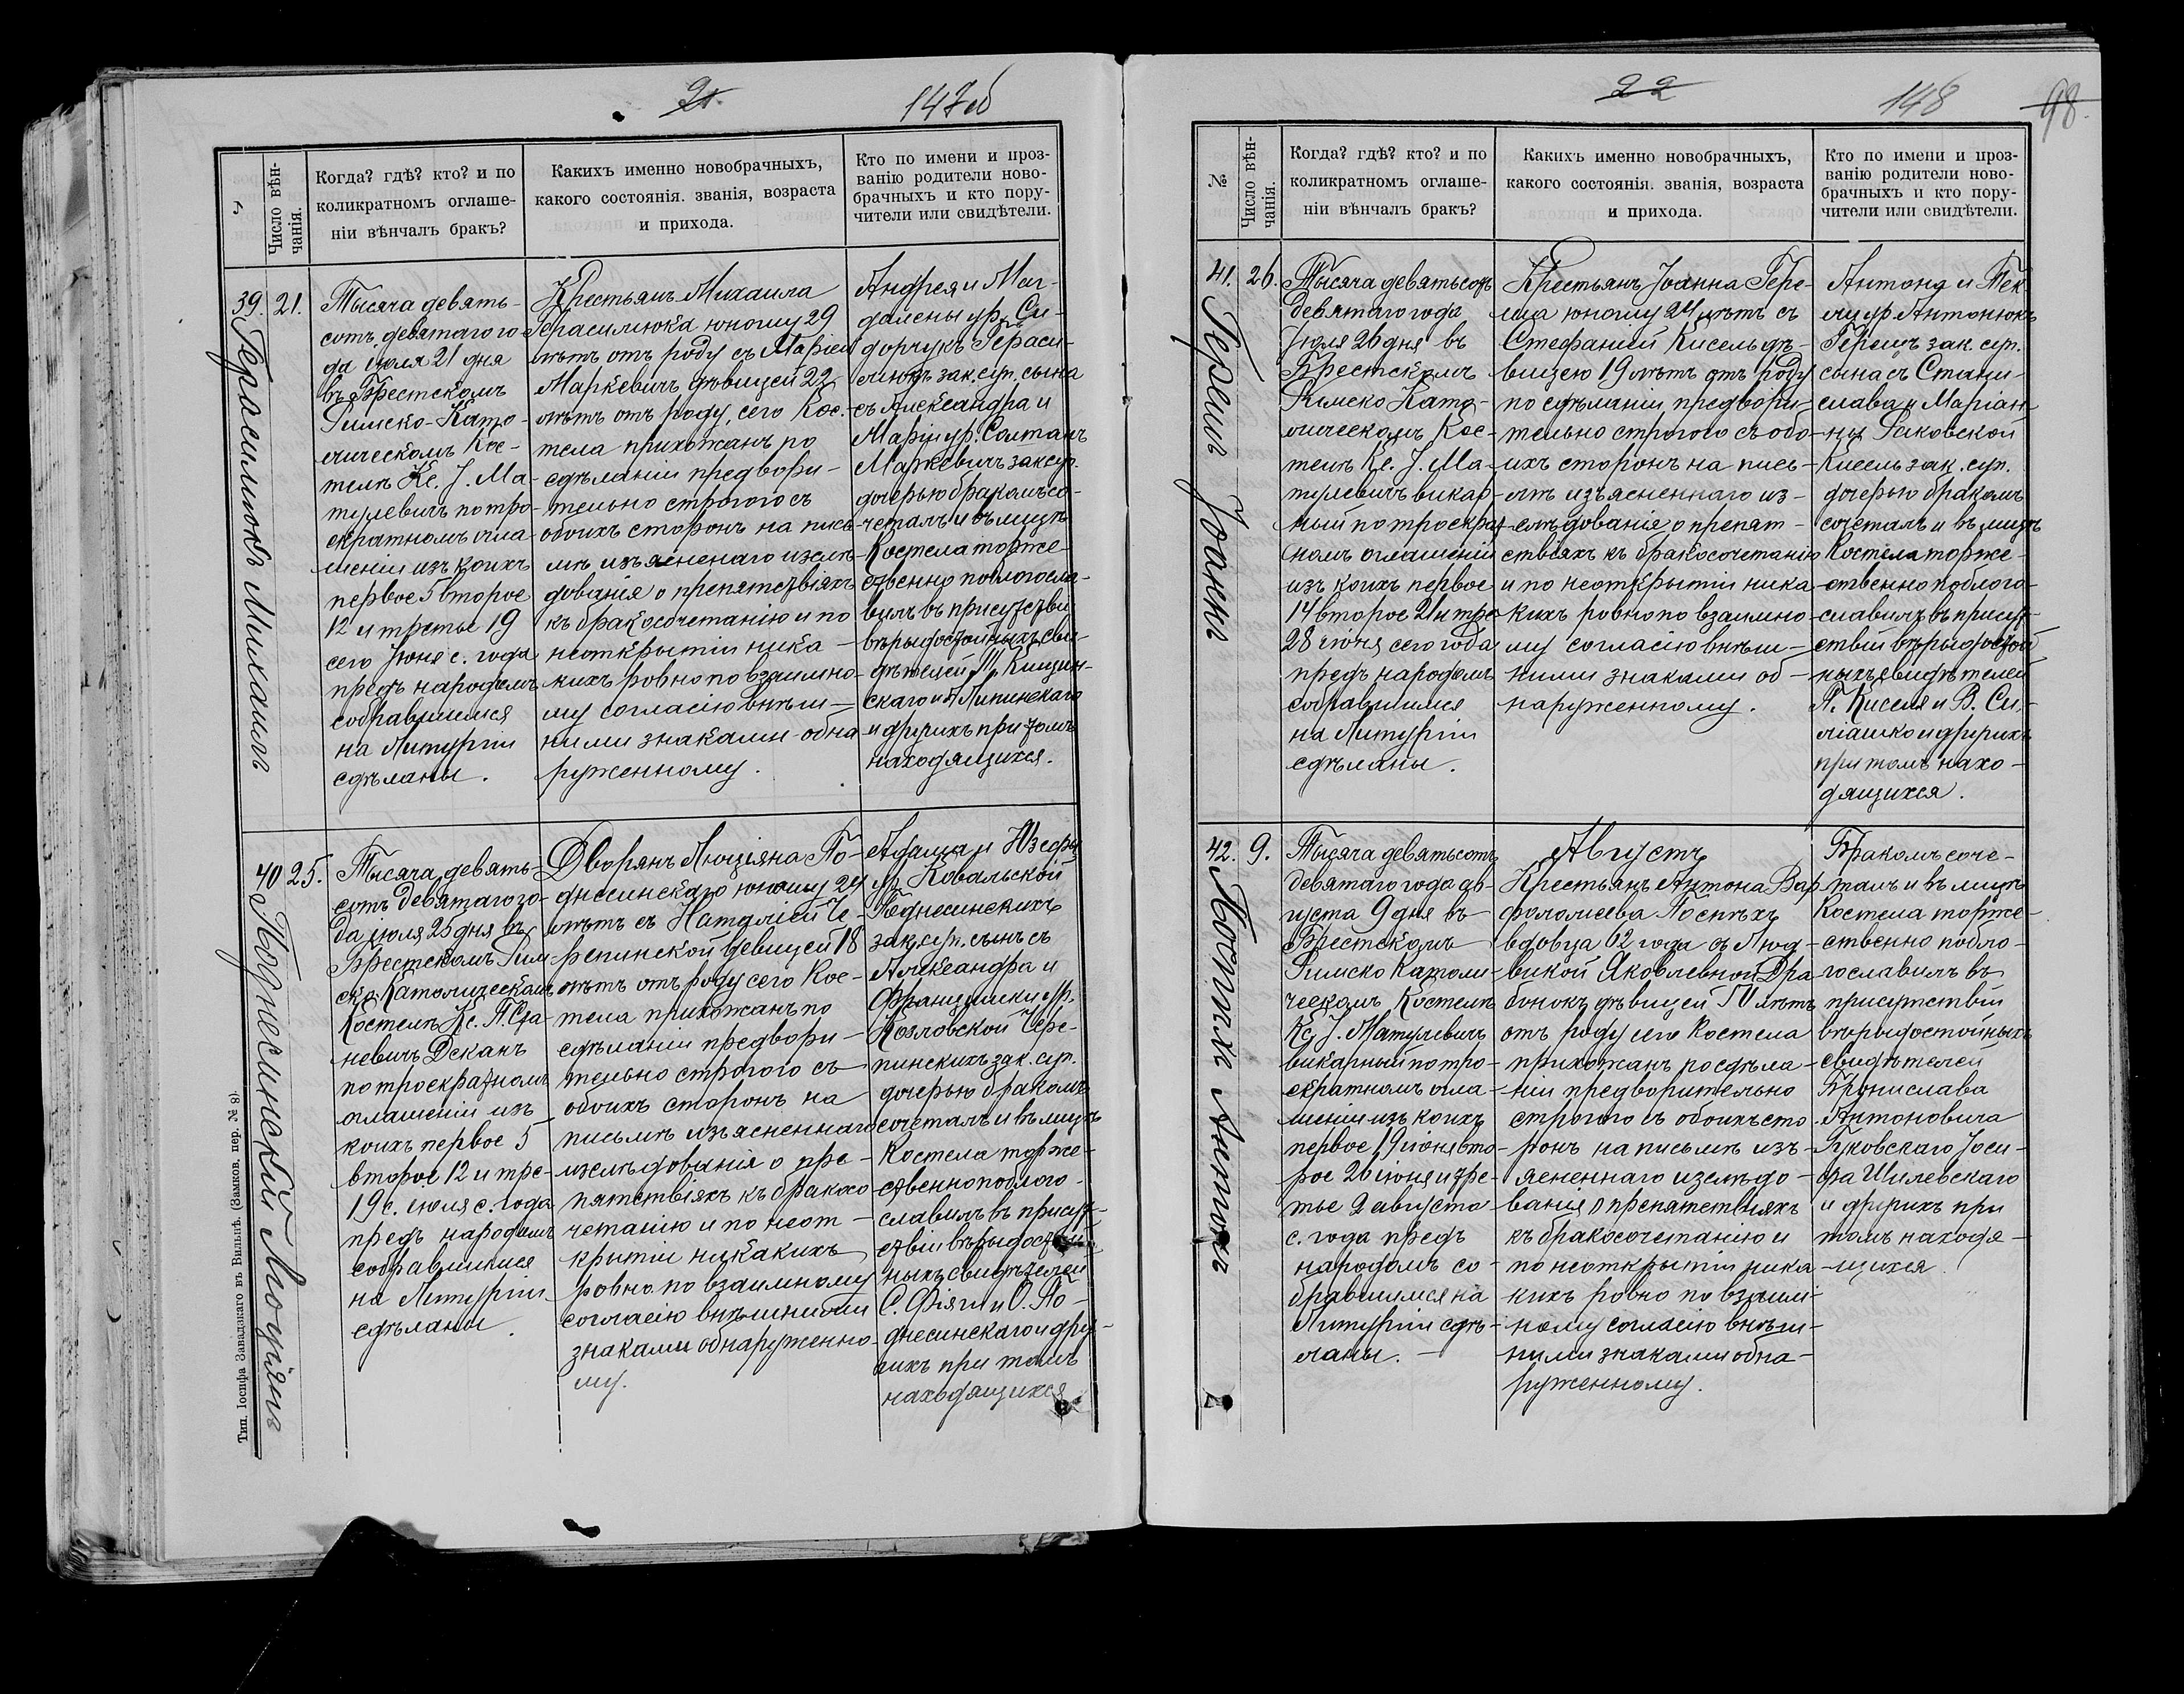 21.
147об
№
Число вѣн-
чанія.
Когда? гдѣ? кто? и по
коликратномъ оглаше-
ніи вѣнчалъ бракъ?
Какихъ именно новобрачныхъ,
какого состоянія. званія, возраста
и прихода.
Кто по имени и проз-
ванію родители ново-
брачныхъ и кто пору-
чители или свидѣтели.
39.
21.
Герасимюкъ Михаилъ
Тысяча девять-
сотъ девятаго го-
да іюля 21 дня
въ Брестскомъ
Римско-Като-
лическомъ Кос-
телѣ Кс. J. Ма-
тулевичъ по тро-
екратномъ огла-
шеніи изъ коихъ
первое 5 второе
12 и третье 19
сего Іюня с. года
предъ народомъ
собравшимся
на Литургіи
сдѣланы.
Крестьянъ Михаила
Герасимюка юношу 29
лѣтъ отъ роду съ Маріей
Маркевичъ дѣвицей 22
лѣтъ отъ роду, сего Кос-
тела прихожанъ по
сдѣланіи предвори-
тельно строгого съ
обоихъ сторонъ на пись-
мѣ изъясненаго изслѣ-
дованія о препятствіяхъ
къ бракосочетанію и по
неоткрытіи ника-
кихъ ровно по взаимно-
му согласію внѣш-
ними знаками обна-
руженному.
Андрея и Маг-
далены ур. Си-
дорчукъ Гераси-
мюкъ зак. суп. сына
съ Александра и
Маріи ур. Солтанъ
Маркевичъ зак. суп.
дочерью бракомъ со-
четалъ и въ лицѣ
Костела торже-
ственно поблогосла-
вилъ въ присутстви
вѣрыдостойныхъ сви-
дѣтелей М. Кищин-
скаго и Липинскаго
и другихъ при томъ
находящихся.
40
25.
Поднесинскій Люціянъ
Тысяча девять-
сотъ девятаго го-
да іюля 25 дня въ
Брестскомъ Рим-
ско-Католическомъ
Костелѣ Кс. П. Ста-
невичъ Деканъ
по троекратномъ
оглашеніи изъ
коихъ первое 5
второе 12 и тре-
19 с. іюля с. года
предъ народомъ
собравшимся
на Литургіи
сдѣланы.
Дворянъ Люціяна По-
днесинскаго юношу 24
лѣтъ съ Наталіей Че-
репинской девицей 18
лѣтъ отъ роду сего Кос-
тела прихожанъ по
сдѣланіи предвори-
тельно строгого съ
обоихъ сторонъ на
письмѣ изъясненнаго
изслѣдованія о пре-
пятствіяхъ къ бракосо
четанію и по неот-
крытіи никакихъ
ровно по взаимному
согласію внѣшними
знаками обнаруженно-
му.
Адама и Юзефы
ур. Ковальской
Поднесинскихъ
зак. суп. сынъ съ
Александра и
Францишки ур.
Козловской Чере-
пинскихъ зак. суп.
дочерью бракомъ
сочеталъ и въ лицѣ
Костела торже-
ственно поблого-
славилъ въ присут-
ствіи вѣрыдостой-
ныхъ свидѣтелей
С. Фіяги О. По-
днесинскаго и дру-
гихъ при томъ
находящихся
Тип. Іосифа Завадзкаго въ Вильнѣ. (Замков. пер. № 8).
22
148
98.
№
Число вѣн-
чанія.
Когда? гдѣ? кто? и по
коликратномъ оглаше-
ніи вѣнчалъ бракъ?
Какихъ именно новобрачныхъ,
какого состоянія. званія, возраста
и прихода.
Кто по имени и проз-
ванію родители ново-
брачныхъ и кто пору-
чители или свидѣтели.
41.
26.
Герешъ Іоаннъ
Тысяча девятьсотъ
девятаго года
Іюля 26 дня въ
Брестскомъ
Римско Като-
лическомъ Кос-
телѣ Кс. J. Ма-
тулевичъ викар-
ный по троекрат-
номъ оглашеніи
изъ коихъ первое
14 второе 21 и тре
28 іюня сего года
предъ народомъ
собравшимся
на Литургіи
сдѣланы.
Крестьянъ Іоанна Гере-
ша юношу 24 лѣтъ съ
Стефаніей Кисель дѣ-
вицею 19 лѣтъ отъ роду
по сдѣланіи предвори-
тельно строгого съ обо-
ихъ сторонъ на пись-
мѣ изъясненнаго из-
слѣдованія о препят-
ствіяхъ къ бракосочетанію
и по неоткрытіи ника-
кихъ ровно по взаимно-
му согласію внѣш-
ними знаками об-
наруженному.
Антона и Тек-
ли ур. Антонюкъ
Герешъ зак. суп.
сына съ Стани-
слава и Маріан-
ны Раковской
Кисель зак. суп.
дочерью бракомъ
сочеталъ и въ лицѣ
Костела торже-
ственно поблого-
славилъ въ присут-
ствіи вѣрыдостой
ныхъ свидѣтелей
П. Киселя и В. Си-
ліашко и другихъ
при томъ нахо-
дящихся.
42.
9.
Поспѣхъ Антонъ
Тысяча девятьсотъ
девятаго года ав-
густа 9 дня въ
Брестскомъ
Римско Католи-
ческомъ Костелѣ
Кс. J. Матулевичъ
викарный по тро-
екратномъ огла-
шеніи изъ коихъ
первое 19 іюня вто-
рое 26 іюня и тре-
тье 2 августа
с. года предъ
народомъ со-
бравшимся на
Литургіи сдѣ-
ланы.
Августъ
Крестьянъ Антона Вар-
фоломеева Поспѣхъ
вдовца 62 года съ Люд-
викой Яковлевной Дра
бонокъ дѣвицей 50 лѣтъ
отъ роду сего Костела
прихожанъ по сдѣла-
ніи предворительно
строгого съ обоихъ сто
ронъ на письмѣ изъ-
ясненнаго изслѣдо-
ванія о препятствіяхъ
къ бракосочетанію и
по неоткрытіи ника
кихъ ровно по взаим-
ному согласію внѣш-
ними знаками обна-
руженному.
Бракомъ соче-
талъ и въ лицѣ
Костела торже-
ственно побло-
гославилъ въ
присутствіи
вѣрыдостойныхъ
свидѣтелей
Бронислава
Антоновича
Гуковскаго Іоси-
фа Шилевскаго
и другихъ при
томъ находя-
щихся.